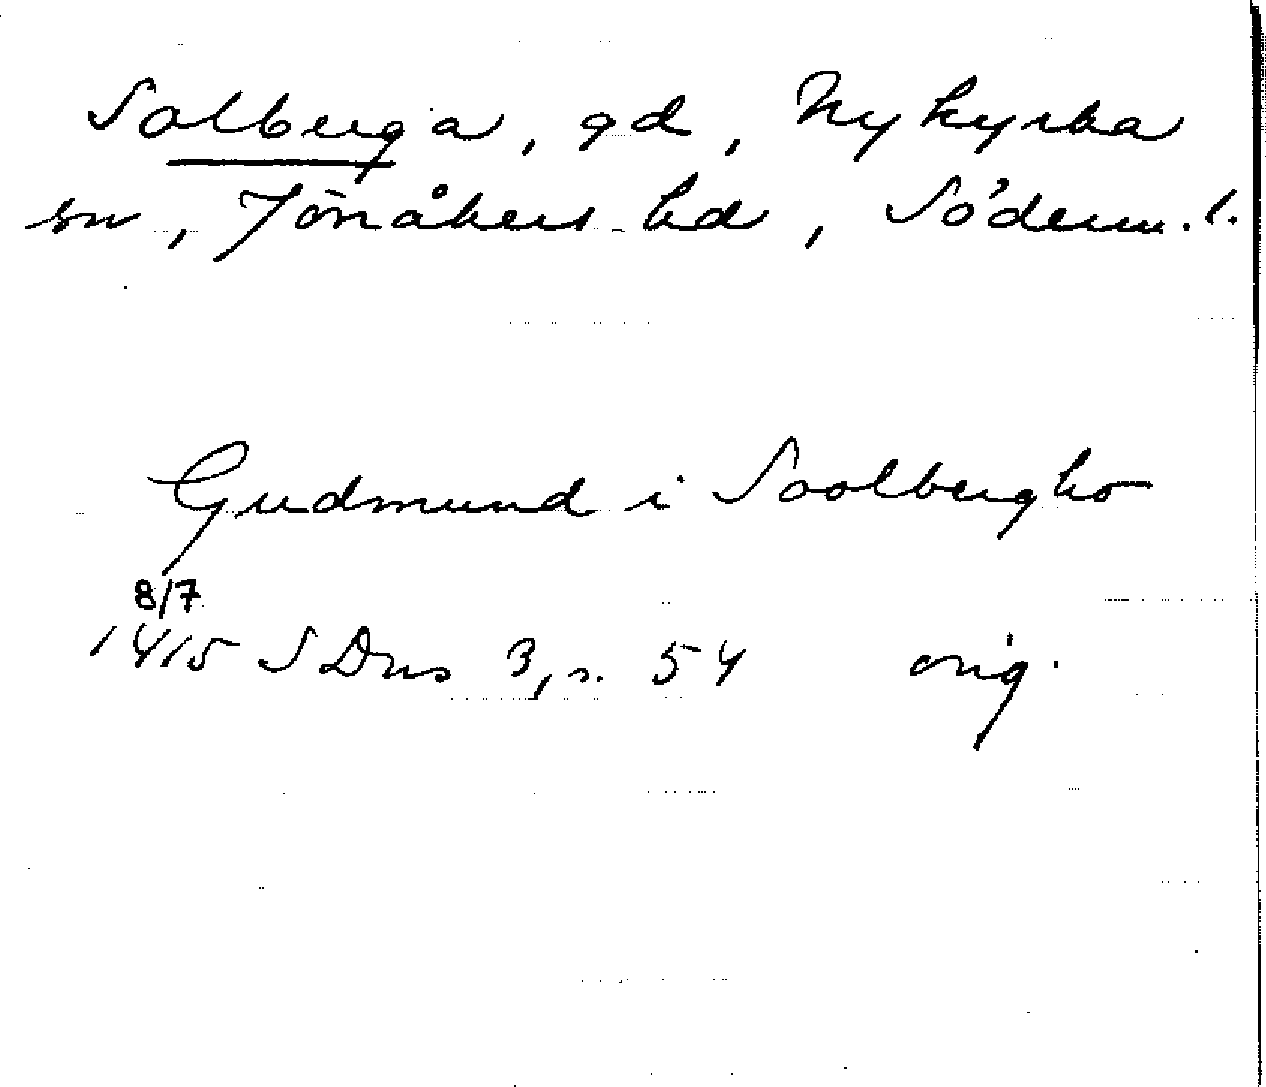 Solberga, gd, Nykyrka
sn, Jönåkers hd, Söderm. l.
Gudmund i Soolbergho
8/7
1415 SDns 3, s. 54 orig.